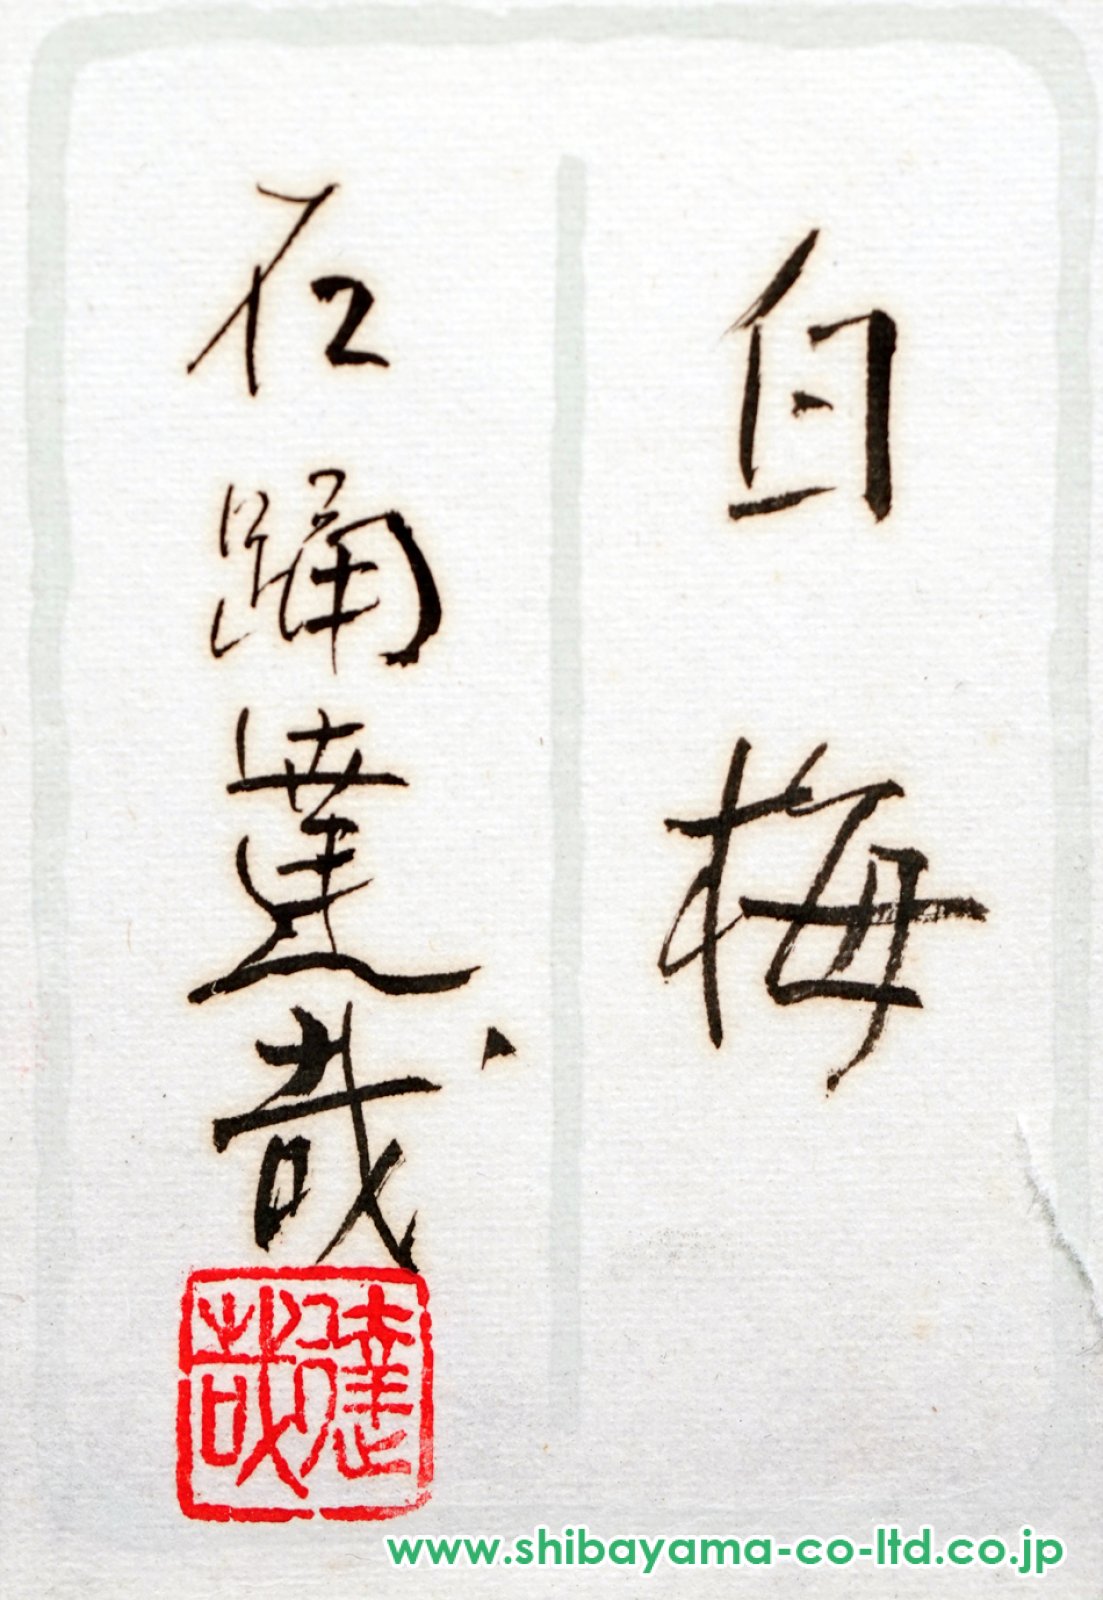 白梅
石踊達哉
達哉
www.shibayama-co-ltd.co.jp